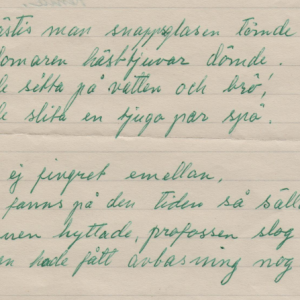 man snappsglasen tömde
domaren hästtjuvar dömde.
sitta på vatten och brö!
slita en tjugo par spö.
ej fingret emellan,
fanns på den tiden så säll
hyttade, profossen slog
hade fått avbasning nog